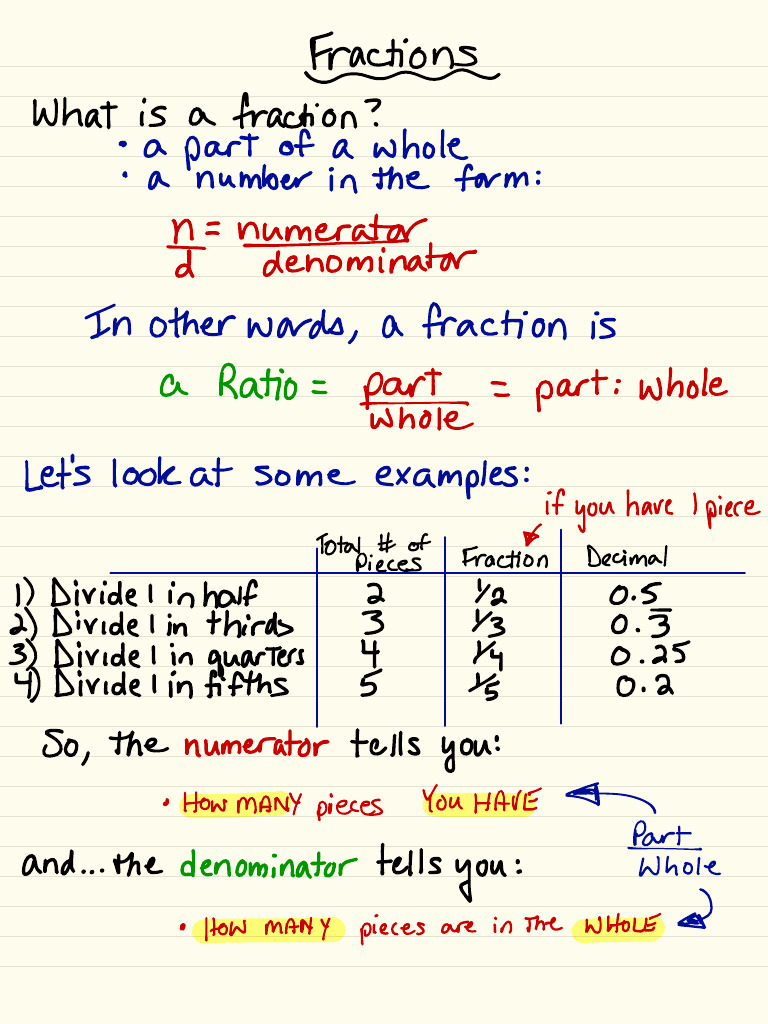 Fractions
What is a fraction?
• a part of a whole
• a number in the form:
n = numerator
d denominator
In other words, a fraction is
a Ratio = part = part: whole
whole
Let's look at some examples:
if you have 1 piece
Total # of
Pieces Fraction Decimal
1) Divide 1 in half 2 1/2 0.5
2) Divide 1 in thirds 3 1/3 0.3̅
3) Divide 1 in quarters 4 1/4 0.25
4) Divide 1 in fifths 5 1/5 0.2
So, the numerator tells you:
• HOW MANY pieces YOU HAVE
Part
Whole
and...the denominator tells you:
• HOW MANY pieces are in the WHOLE